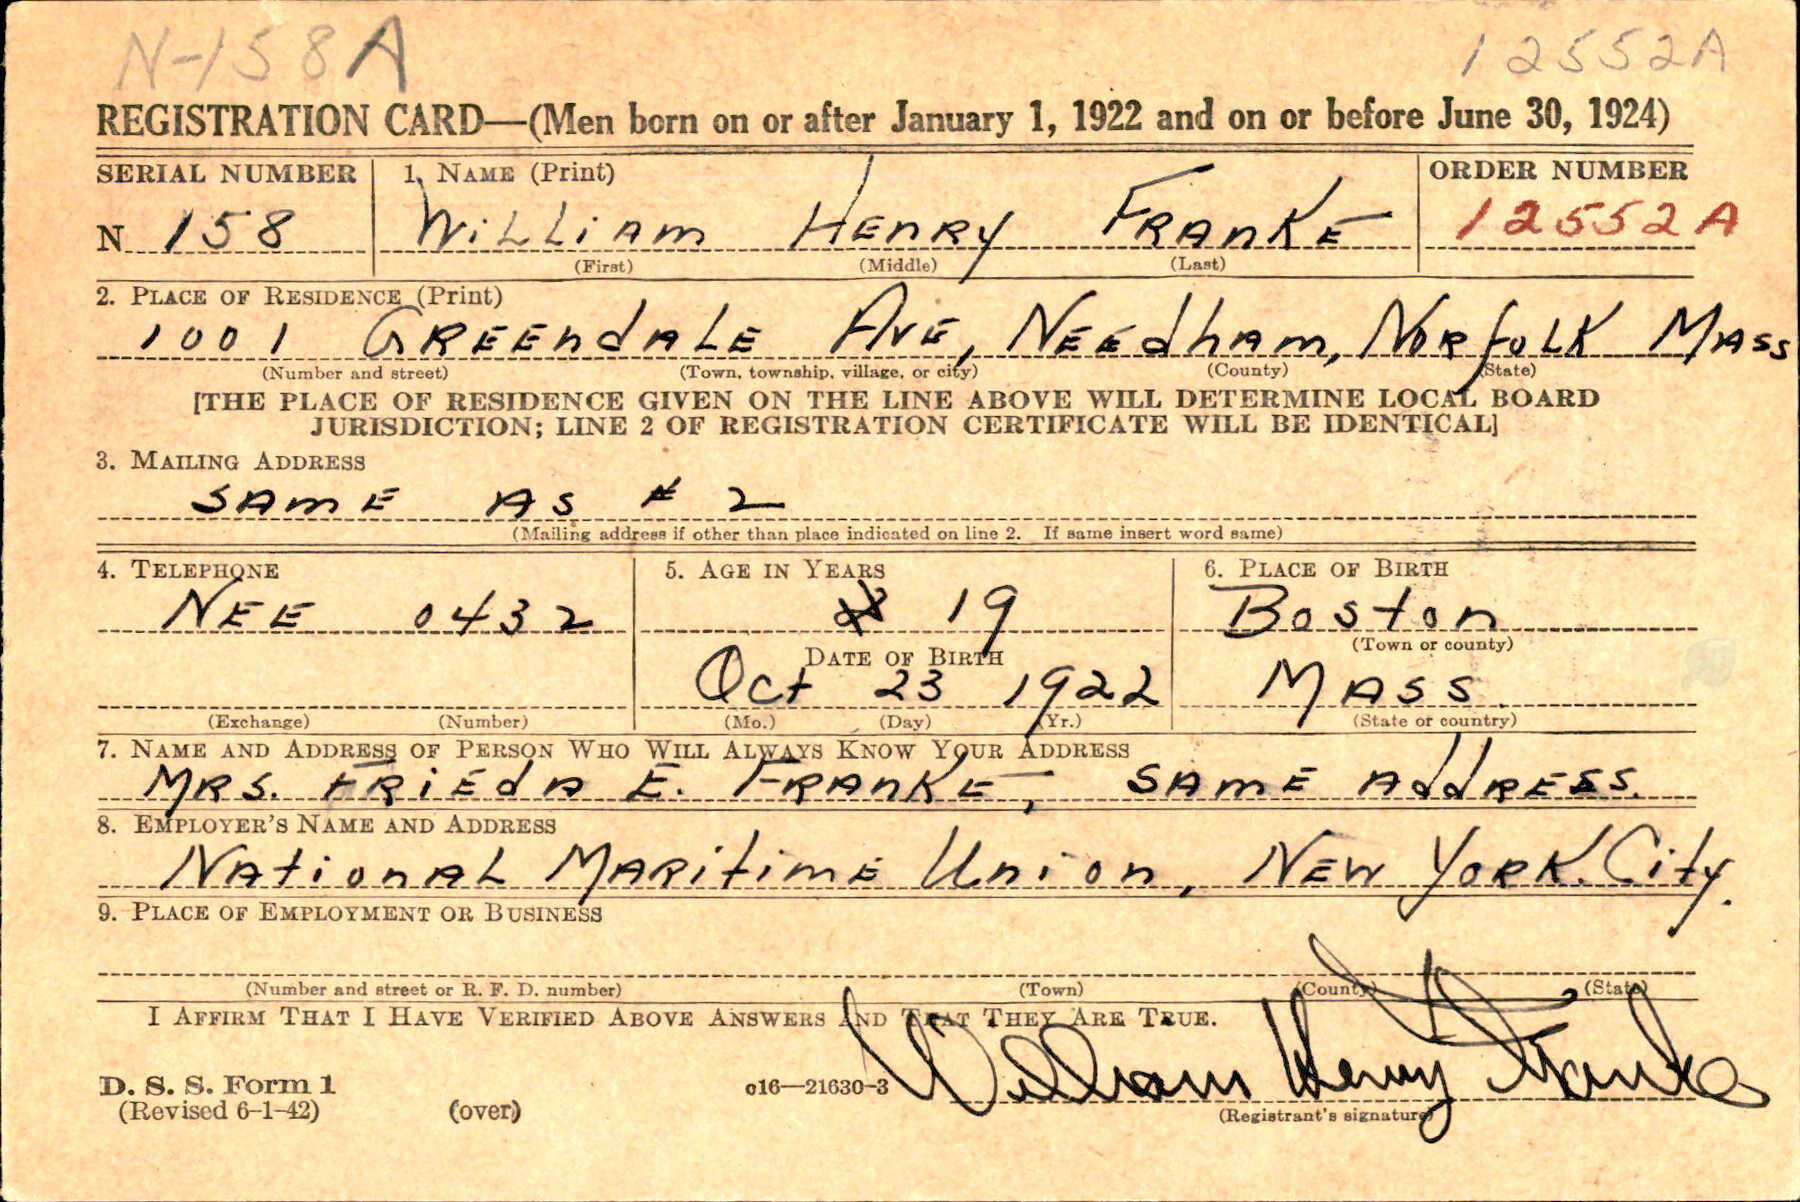 N-158A 12552A
REGISTRATION CARD—(Men born on or after January 1, 1922 and on or before June 30, 1924)
SERIAL NUMBER 1. NAME (Print) ORDER NUMBER
N 158 WiLLiAm HEnRy FRAnKE 12552A
(First) (Middle) (Last)
2. PLACE OF RESIDENCE (Print)
1001 GREEndALE AvE, NEEdhAm, NORfoLK MAss
(Number and street) (Town, township, village, or city) (County) (State)
[THE PLACE OF RESIDENCE GIVEN ON THE LINE ABOVE WILL DETERMINE LOCAL BOARD
JURISDICTION; LINE 2 OF REGISTRATION CERTIFICATE WILL BE IDENTICAL]
3. MAILING ADDRESS
SAmE AS # 2
(Mailing address if other than place indicated on line 2. If same insert word same)
4. TELEPHONE 5. AGE IN YEARS 6. PLACE OF BIRTH
NEE 0432 19 Boston
(Town or county)
DATE OF BIRTH
Oct 23 1922 MASS.
(Exchange) (Number) (Mo.) (Day) (Yr.) (State or country)
7. NAME AND ADDRESS OF PERSON WHO WILL ALWAYS KNOW YOUR ADDRESS
MRS. FRiEdA E. FRAnKE, SAmE AddRESS.
8. EMPLOYER'S NAME AND ADDRESS
NAtionAL MARitimE Union, NEW YORK. City.
9. PLACE OF EMPLOYMENT OR BUSINESS
(Number and street or R. F. D. number) (Town) (County) (State)
I AFFIRM THAT I HAVE VERIFIED ABOVE ANSWERS AND THAT THEY ARE TRUE.
D. S. S. Form 1 o16—21630-3 William Henry Franke
(Revised 6-1-42) (over) (Registrant's signature)